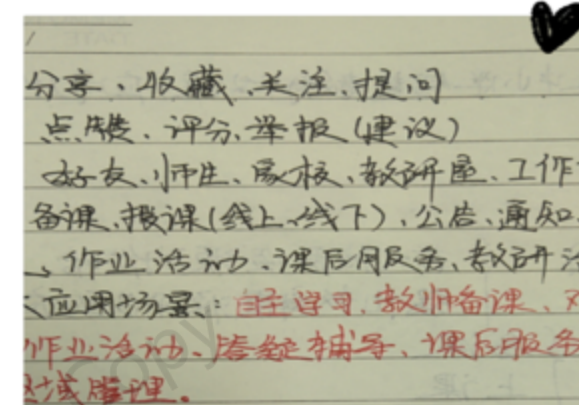 分享、收藏、关注、提问
点赞、评分、举报(建议)
好友、师生、家校、教研屋、工作
备课、授课(线上、线下)、公告、通知
、作业活动、课后服务、教研活
应用场景:自主学习、教师备课、
作业活动、答疑辅导、课后服务
区域管理。
Copy